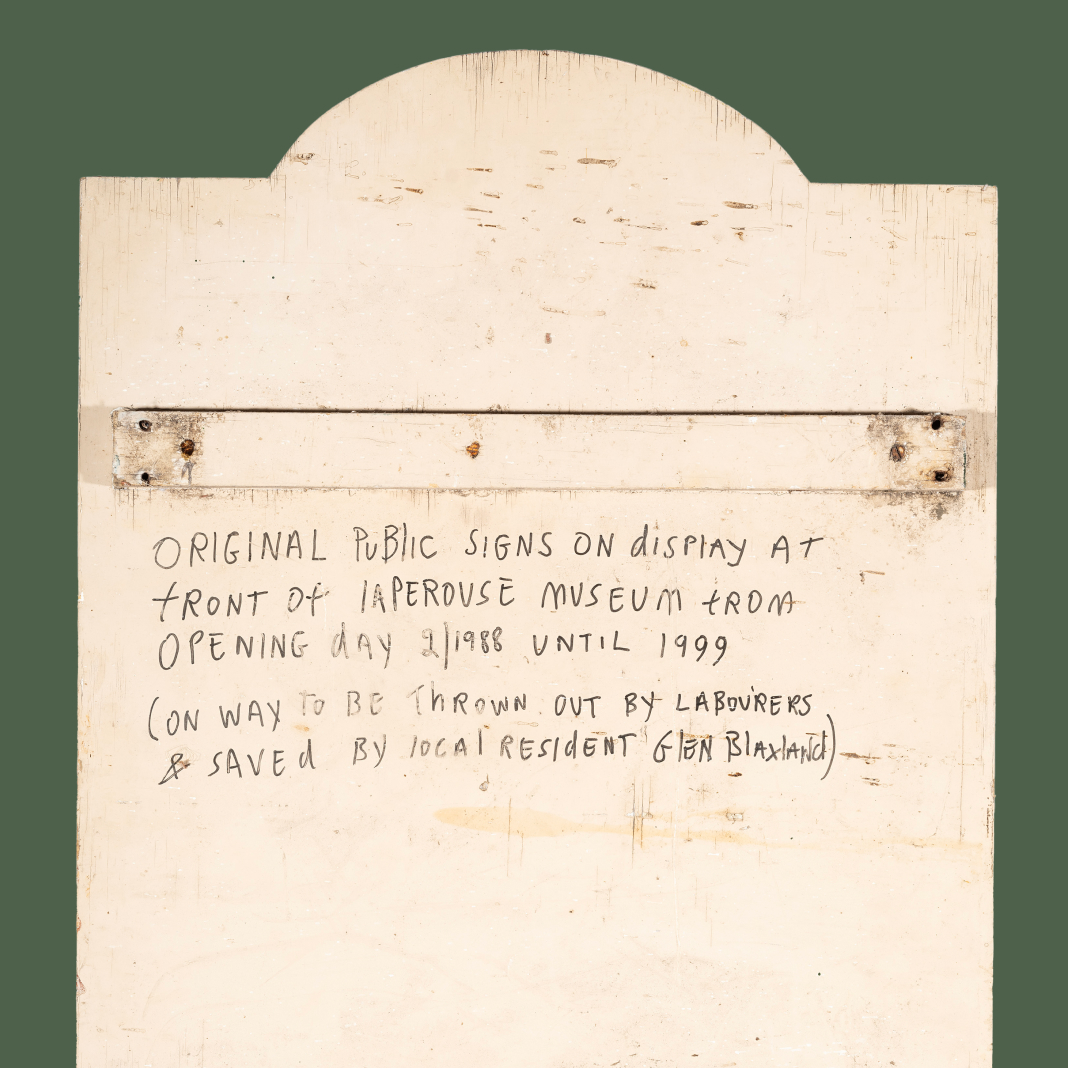 ORIGINAL PuBlIC SIGNS ON display AT
fRONT Of lAPEROUSE MUSEUM fROM
OPENING dAY 2/1988 UNTIL 1999
(ON WAY TO BE ThROWN OUT BY LABOURERS
& SAVEd BY lOCAl RESIdENT GlEN BlAxlANd)